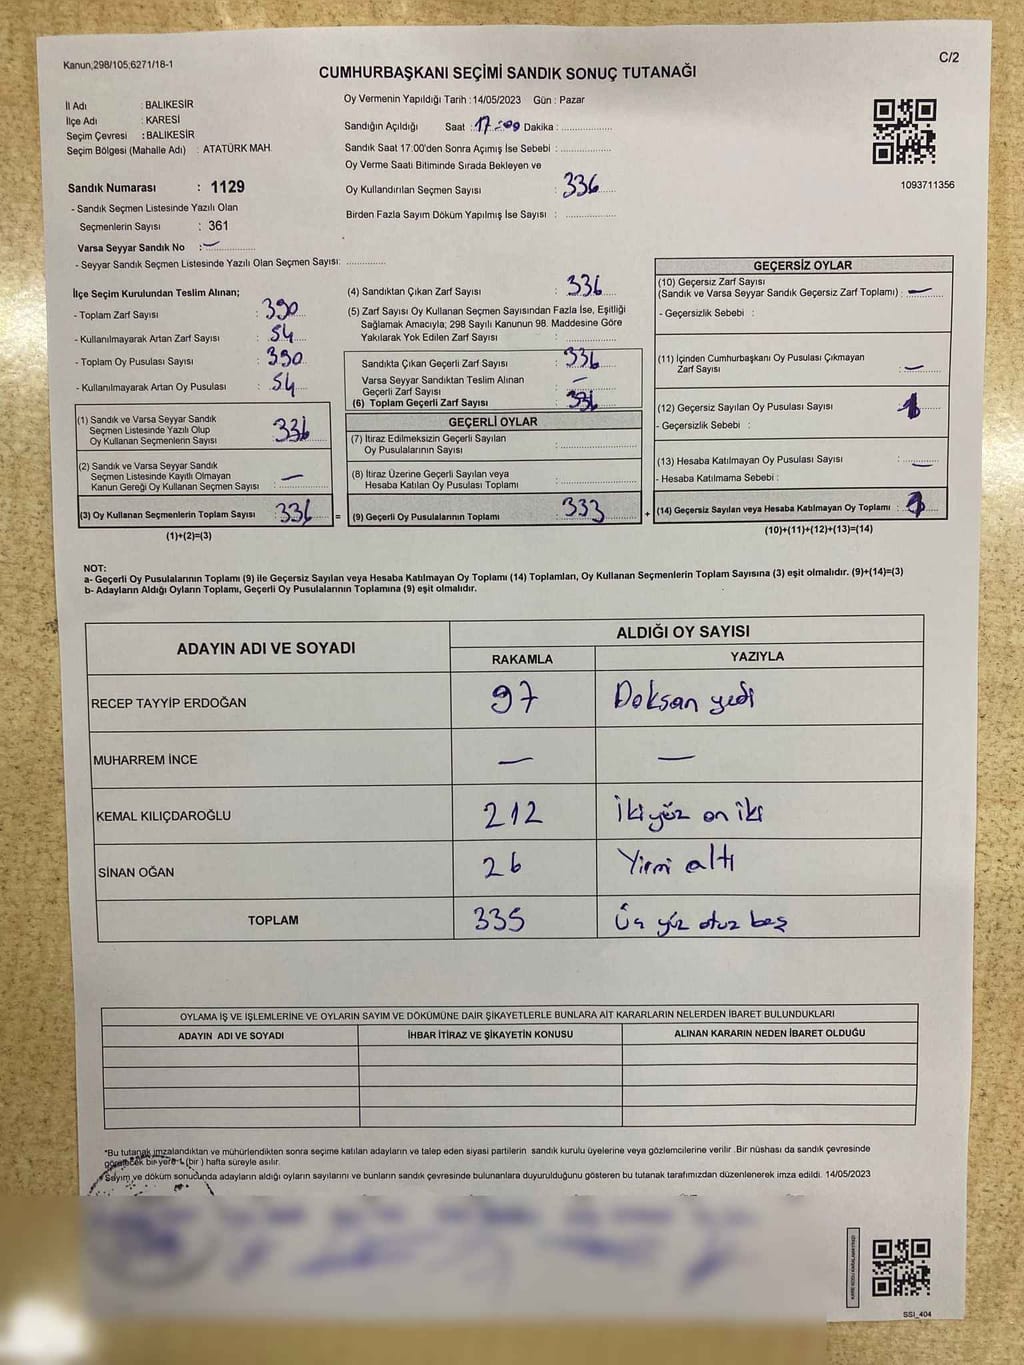 Kanun;298/105,6271/18-1
C/2
CUMHURBAŞKANI SEÇİMİ SANDIK SONUÇ TUTANAĞI
İl Adı : BALIKESİR
İlçe Adı : KARESİ
Seçim Çevresi : BALIKESİR
Seçim Bölgesi (Mahalle Adı) : ATATÜRK MAH.
Sandık Numarası : 1129
- Sandık Seçmen Listesinde Yazılı Olan
Seçmenlerin Sayısı : 361
Varsa Seyyar Sandık No : —
- Seyyar Sandık Seçmen Listesinde Yazılı Olan Seçmen Sayısı: ............
Oy Vermenin Yapıldığı Tarih : 14/05/2023 Gün : Pazar
Sandığın Açıldığı Saat : 17:00 Dakika : ................
Sandık Saat 17.00'den Sonra Açımış İse Sebebi : ................
Oy Verme Saati Bitiminde Sırada Bekleyen ve
Oy Kullandırılan Seçmen Sayısı : 336
Birden Fazla Sayım Döküm Yapılmış İse Sayısı : ................
1093711356
İlçe Seçim Kurulundan Teslim Alınan;
- Toplam Zarf Sayısı : 390
- Kullanılmayarak Artan Zarf Sayısı : 54
- Toplam Oy Pusulası Sayısı : 390
- Kullanılmayarak Artan Oy Pusulası : 54
(1) Sandık ve Varsa Seyyar Sandık
Seçmen Listesinde Yazılı Olup
Oy Kullanan Seçmenlerin Sayısı : 336
(2) Sandık ve Varsa Seyyar Sandık
Seçmen Listesinde Kayıtlı Olmayan
Kanun Gereği Oy Kullanan Seçmen Sayısı : —
(3) Oy Kullanan Seçmenlerin Toplam Sayısı : 336 =
(1)+(2)=(3)
(4) Sandıktan Çıkan Zarf Sayısı : 336
(5) Zarf Sayısı Oy Kullanan Seçmen Sayısından Fazla İse, Eşitliği
Sağlamak Amacıyla; 298 Sayılı Kanunun 98. Maddesine Göre
Yakılarak Yok Edilen Zarf Sayısı : ................
Sandıkta Çıkan Geçerli Zarf Sayısı : 336
Varsa Seyyar Sandıktan Teslim Alınan
Geçerli Zarf Sayısı : —
(6) Toplam Geçerli Zarf Sayısı : 336
GEÇERLİ OYLAR
(7) İtiraz Edilmeksizin Geçerli Sayılan
Oy Pusulalarının Sayısı : ................
(8) İtiraz Üzerine Geçerli Sayılan veya
Hesaba Katılan Oy Pusulası Toplamı : ................
(9) Geçerli Oy Pusulalarının Toplamı : 333 +
GEÇERSİZ OYLAR
(10) Geçersiz Zarf Sayısı
(Sandık ve Varsa Seyyar Sandık Geçersiz Zarf Toplamı) : —
- Geçersizlik Sebebi :
(11) İçinden Cumhurbaşkanı Oy Pusulası Çıkmayan
Zarf Sayısı : —
(12) Geçersiz Sayılan Oy Pusulası Sayısı : 1
- Geçersizlik Sebebi :
(13) Hesaba Katılmayan Oy Pusulası Sayısı : —
- Hesaba Katılmama Sebebi :
(14) Geçersiz Sayılan veya Hesaba Katılmayan Oy Toplamı : 1
(10)+(11)+(12)+(13)=(14)
NOT:
a- Geçerli Oy Pusulalarının Toplamı (9) ile Geçersiz Sayılan veya Hesaba Katılmayan Oy Toplamı (14) Toplamları, Oy Kullanan Seçmenlerin Toplam Sayısına (3) eşit olmalıdır. (9)+(14)=(3)
b- Adayların Aldığı Oyların Toplamı, Geçerli Oy Pusulalarının Toplamına (9) eşit olmalıdır.
ADAYIN ADI VE SOYADI ALDIĞI OY SAYISI
RAKAMLA YAZIYLA
RECEP TAYYİP ERDOĞAN 97 Doksan yedi
MUHARREM İNCE — —
KEMAL KILIÇDAROĞLU 212 İki yüz on iki
SİNAN OĞAN 26 Yirmi altı
TOPLAM 335 Üç yüz otuz beş
OYLAMA İŞ VE İŞLEMLERİNE VE OYLARIN SAYIM VE DÖKÜMÜNE DAİR ŞİKAYETLERLE BUNLARA AİT KARARLARIN NELERDEN İBARET BULUNDUKLARI
ADAYIN ADI VE SOYADI İHBAR İTİRAZ VE ŞİKAYETİN KONUSU ALINAN KARARIN NEDEN İBARET OLDUĞU
*Bu tutanak imzalandıktan ve mühürlendikten sonra seçime katılan adayların ve talep eden siyasi partilerin sandık kurulu üyelerine veya gözlemcilerine verilir .Bir nüshası da sandık çevresinde
görelecek bir yere 1 (bir ) hafta süreyle asılır.
*Sayım ve döküm sonucunda adayların aldığı oyların sayılarını ve bunların sandık çevresinde bulunanlara duyurulduğunu gösteren bu tutanak tarafımızdan düzenlenerek imza edildi. 14/05/2023
SSI_404